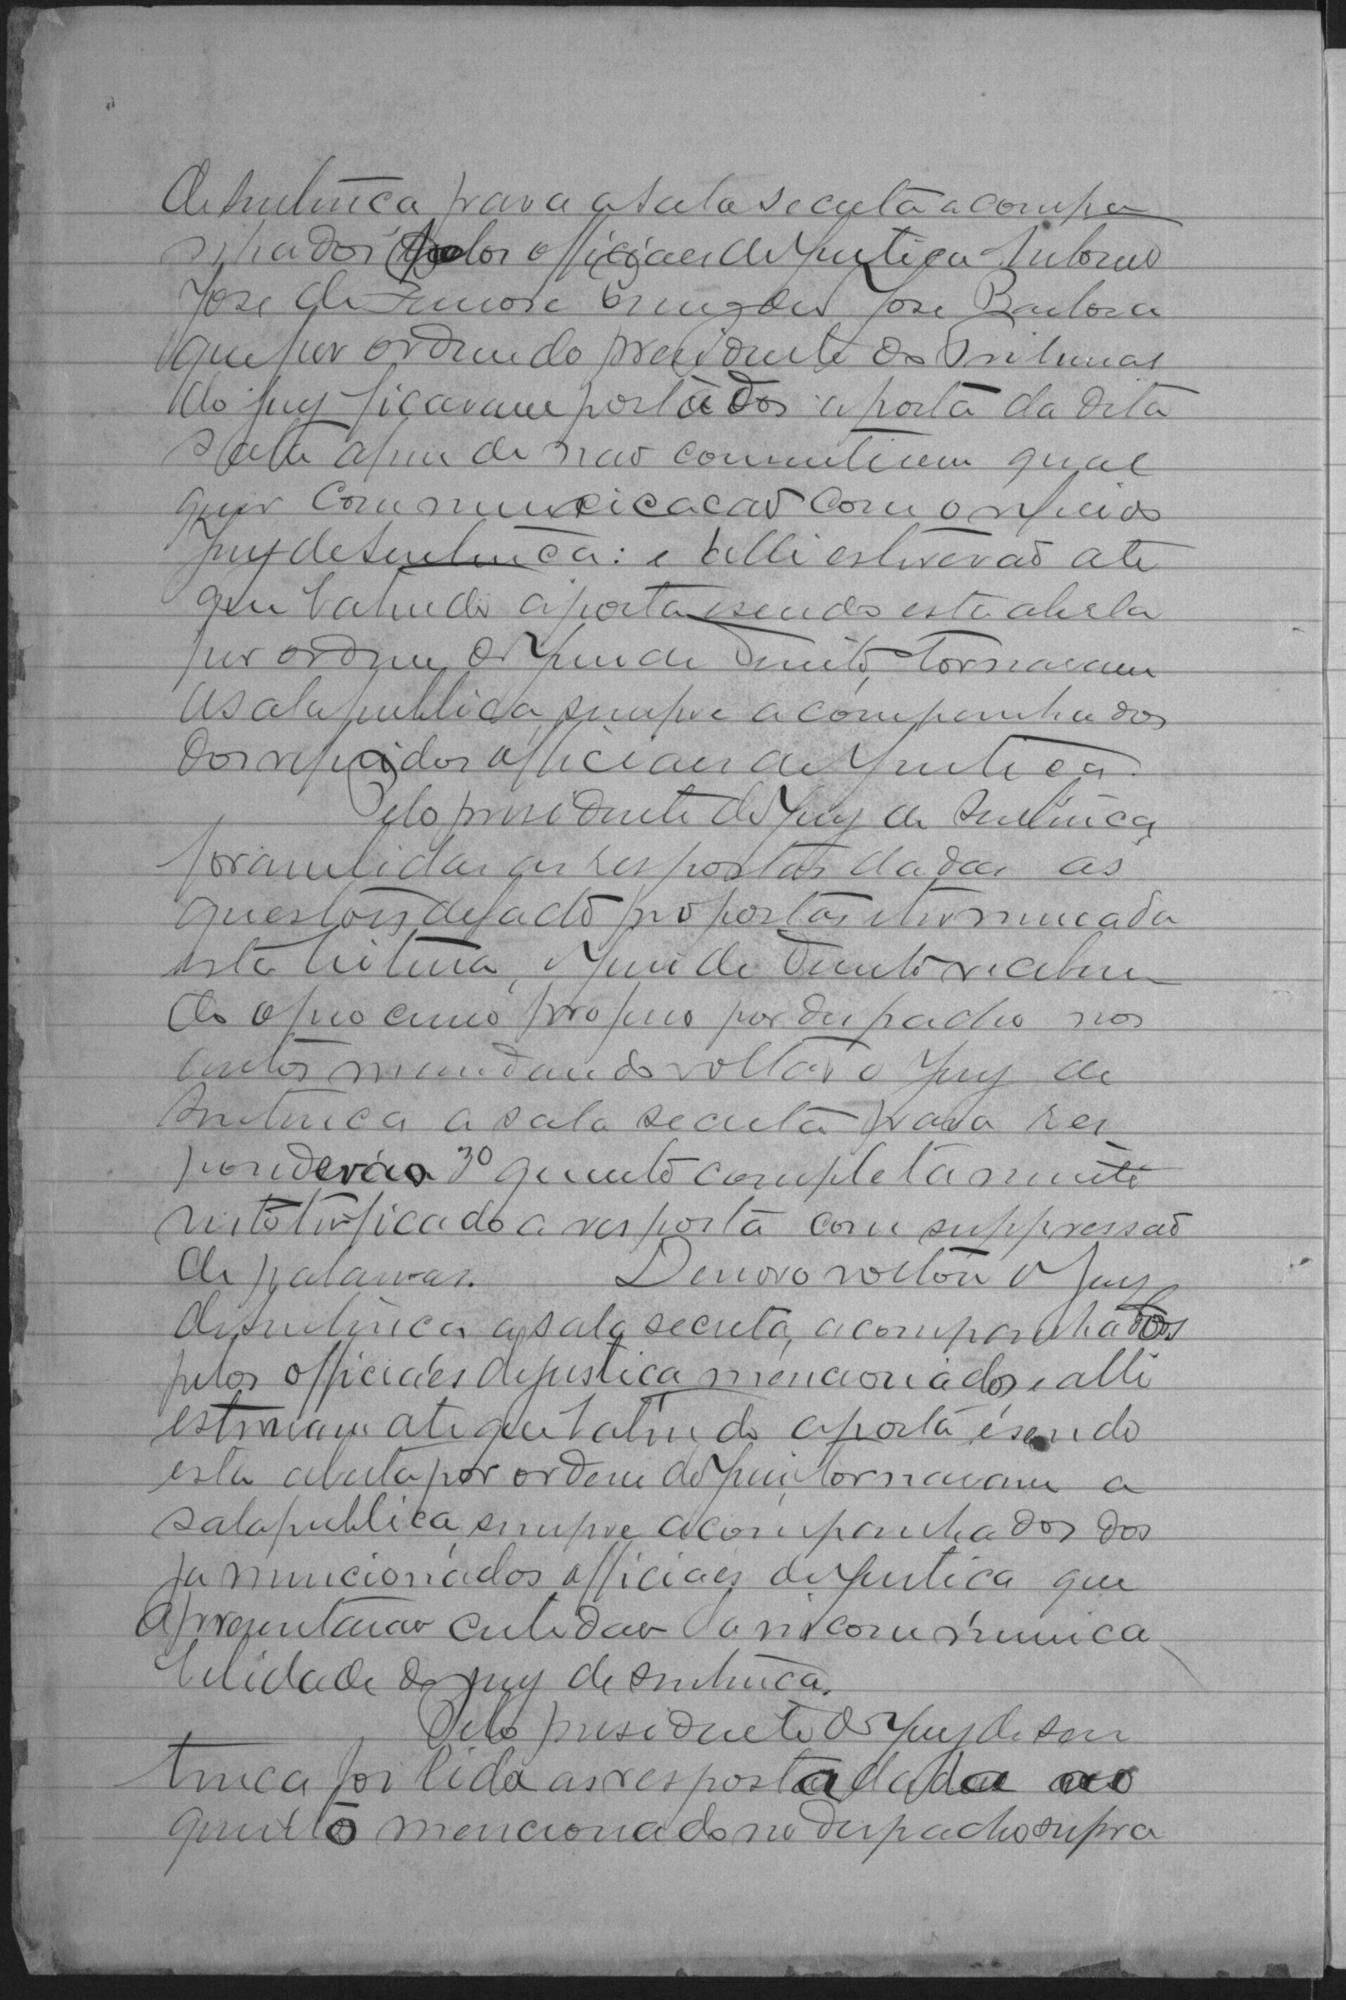 de sentença para a sala secreta acompa
nhados pelos officiaes de justiça Antonio
José de José Barbosa
que por ordem do presidente do Tribunal
do jury ficaram portados a porta da dita
sala afim de não consentirem qual
quer communicacão com o referido
jury de sentença: e alli estiverão ate
que batendo a porta e sendo esta aberta
por ordem do Juiz de Direito, tornaram
a sala publica, sempre acompanhados
dos referidos officiaes de justiça.
Pelo presidente do jury de sentença
foram lidas as respostas dadas as
questões de facto propostas e terminada
esta leitura, o Juiz de Direito receben
do o processo proferio por despacho nos
autos mandando voltar o jury de
sentença a sala secreta para res
ponder ao 3º quesito completamente
a resposta com suppressão
de palavras. De novo voltou o Jury
de sentença a sala secreta, acompanhados
pelos officiaes de justica mencionados e alli
estiveram ate que batendo a porta e sendo
esta aberta por ordem do juiz, tornaram a
sala publica, sempre acompanhados dos
ja mencionados officiaes de justiça que
apresentarão certidão da incommunica
bilidade do jury de sentença.
Pelo presidente do jury de sen
tença foi lida as resposta dada ao
quesito mencionado no despacho supra